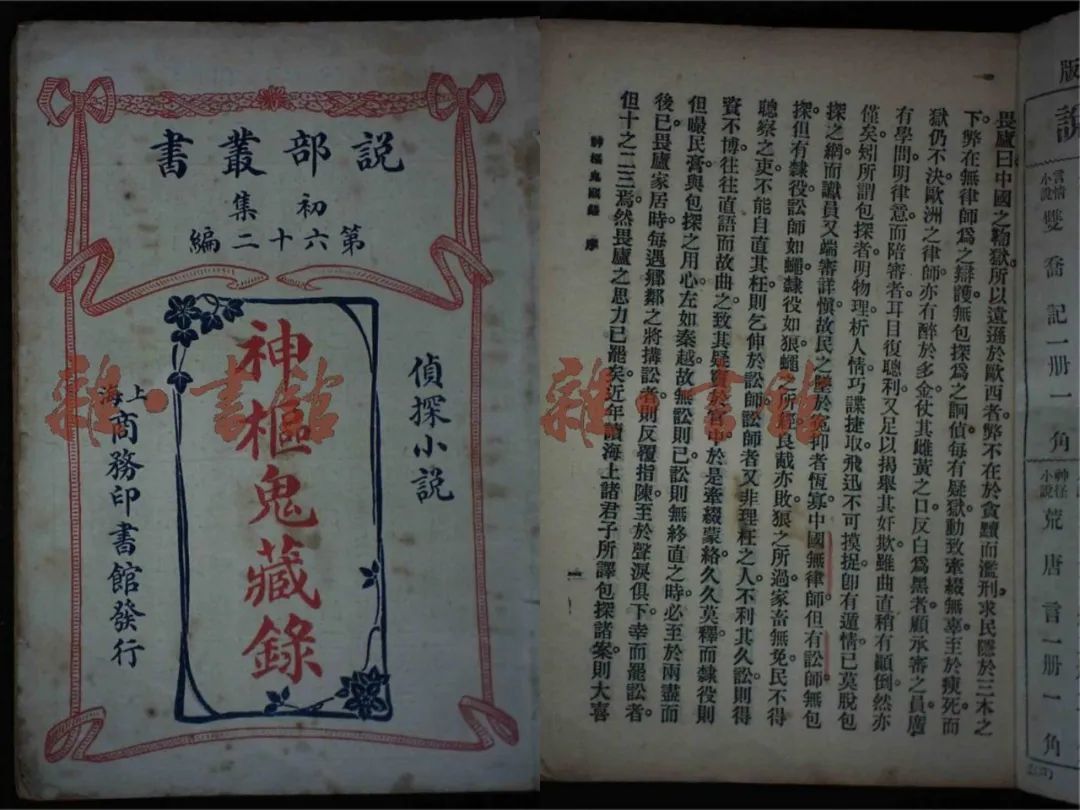 說部叢書
初集
第六十二編
偵探小說
神樞鬼藏錄
上海商務印書館發行
雜·書館
畏廬曰中國之鞫獄所以遠遜於歐西者弊不在於貪黷而濫刑求民隱於三木之
下弊在無律師為之辯護無包探為之詗偵每有疑獄動致牽綴無辜至於瘐死而
獄仍不決歐洲之律師亦有醉於多金仗其雌黃之口反白為黑者顧承審之員廣
有學問明律意而陪審者耳目復聰利又足以揭舉其奸欺雖曲直稍有顛倒然亦
僅矣矧所謂包探者明物理析人情巧諜捷取飛迅不可摸捉即有遁情已莫脫包
探之網而讞員又端審詳慎故民之墜於冤抑者恆寡中國無律師但有訟師無包
探但有隸役訟師如蠅隸役如狼蠅之所經良胾亦敗狼之所過家畜無免民不得
聰察之吏不能自直其枉則乞伸於訟師訟師者又非理枉之人不利其久訟則得
資不博往往直語而故曲之致其疑竇於官中於是牽綴蒙絡久久莫釋而隸役則
但嘬民膏與包探之用心左如秦越故無訟則已訟則無終直之時必至於兩盡而
後已畏廬家居時每遇鄉鄰之將搆訟者則反覆指陳至於聲淚俱下幸而罷訟者
但十之二三焉然畏廬之思力已罷矣近年讀海上諸君子所譯包探諸案則大喜
神樞鬼藏錄 序
一
版
說
言情小說 雙喬記一册一角
神怪小說 荒唐言一册一角